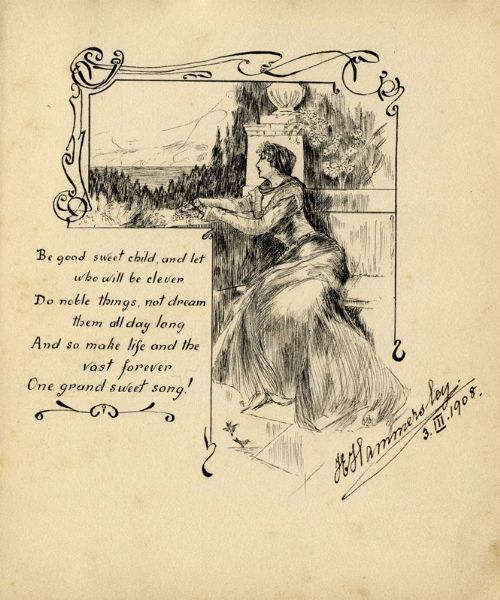 Be good sweet child, and let
who will be clever
Do noble things, not dream
them all day long
And so make life and the
vast forever
One grand sweet song!
H Hammersley.
3.III.1908.